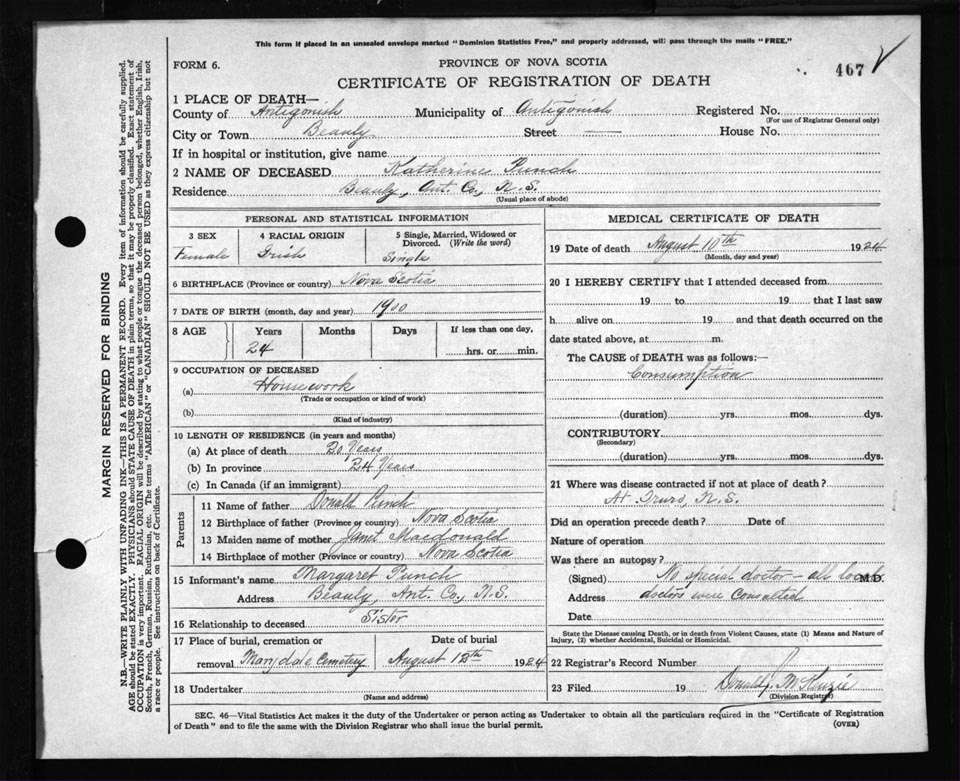 This form if placed in an unsealed envelope marked "Dominion Statistics Free," and properly addressed, will pass through the mails "FREE."
FORM 6.
PROVINCE OF NOVA SCOTIA
467
CERTIFICATE OF REGISTRATION OF DEATH
1 PLACE OF DEATH—
County of Antigonish Municipality of Antigonish Registered No.
(For use of Registrar General only)
City or Town Beauly Street — House No.
If in hospital or institution, give name
2 NAME OF DECEASED Katherine Punch
Residence Beauly, Ant. Co., N.S.
(Usual place of abode)
PERSONAL AND STATISTICAL INFORMATION
3 SEX 4 RACIAL ORIGIN 5 Single, Married, Widowed or Divorced. (Write the word)
Female Irish Single
6 BIRTHPLACE (Province or country) Nova Scotia
7 DATE OF BIRTH (month, day and year) 1900
8 AGE Years Months Days If less than one day,
24 hrs. or min.
9 OCCUPATION OF DECEASED
(a) Housework
(Trade or occupation or kind of work)
(b)
(Kind of industry)
10 LENGTH OF RESIDENCE (in years and months)
(a) At place of death 20 Years
(b) In province 24 Years
(c) In Canada (if an immigrant)
Parents
11 Name of father Donald Punch
12 Birthplace of father (Province or country) Nova Scotia
13 Maiden name of mother Janet Macdonald
14 Birthplace of mother (Province or country) Nova Scotia
15 Informant's name Margaret Punch
Address Beauly, Ant. Co., N.S.
16 Relationship to deceased Sister
17 Place of burial, cremation or Date of burial
removal Marydale Cemetery August 12th 1924
18 Undertaker
(Name and address)
MEDICAL CERTIFICATE OF DEATH
19 Date of death August 10th 1924
(Month, day and year)
20 I HEREBY CERTIFY that I attended deceased from
19 to 19 that I last saw
h alive on 19 and that death occurred on the
date stated above, at m.
The CAUSE of DEATH was as follows:—
Consumption
(duration) yrs. mos. dys.
CONTRIBUTORY
(Secondary)
(duration) yrs. mos. dys.
21 Where was disease contracted if not at place of death?
At Truro, N.S.
Did an operation precede death? Date of
Nature of operation
Was there an autopsy?
(Signed) No special doctor — all local M.D.
Address doctors were consulted
Date
State the Disease causing Death, or in death from Violent Causes, state (1) Means and Nature of
Injury, (2) whether Accidental, Suicidal or Homicidal.
22 Registrar's Record Number
23 Filed 19 Donald J. McKenzie
(Division Registrar)
SEC. 46—Vital Statistics Act makes it the duty of the Undertaker or person acting as Undertaker to obtain all the particulars required in the "Certificate of Registration
of Death" and to file the same with the Division Registrar who shall issue the burial permit. (OVER)
MARGIN RESERVED FOR BINDING
N.B.—WRITE PLAINLY WITH UNFADING INK—THIS IS A PERMANENT RECORD. Every item of information should be carefully supplied.
AGE should be stated EXACTLY. PHYSICIANS should STATE CAUSE OF DEATH in plain terms, so that it may be properly classified. Exact statement of
OCCUPATION is very important. RACIAL ORIGIN will be described by stating to what people or tongue the deceased person belonged, whether English, Irish,
Scotch, French, German, Russian, Ruthenian, etc. The terms "AMERICAN" or "CANADIAN" SHOULD NOT BE USED as they express citizenship but not
a race or people. See instructions on back of Certificate.